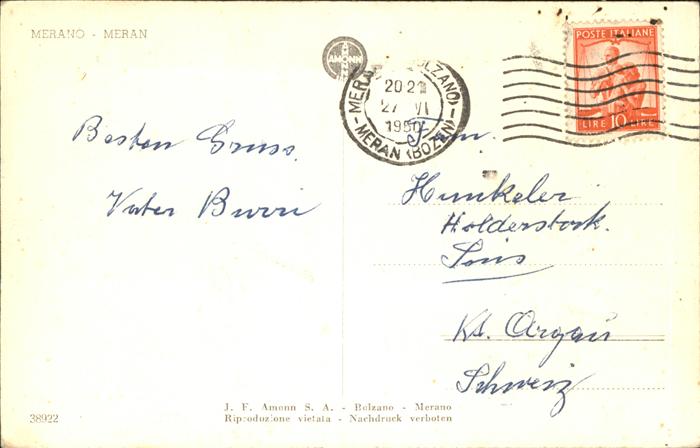 MERANO - MERAN
AMONN
MERANO (BOLZANO)
20-21
27 VI
1950
MERAN (BOZEN)
POSTE ITALIANE
LIRE 10
Besten Gruss.
Vater Burri
Fam.
Hunkeler
Holderstock.
Sins
Kt. Argau
Schweiz
38922
J. F. Amonn S. A. - Bolzano - Merano
Riproduzione vietata - Nachdruck verboten